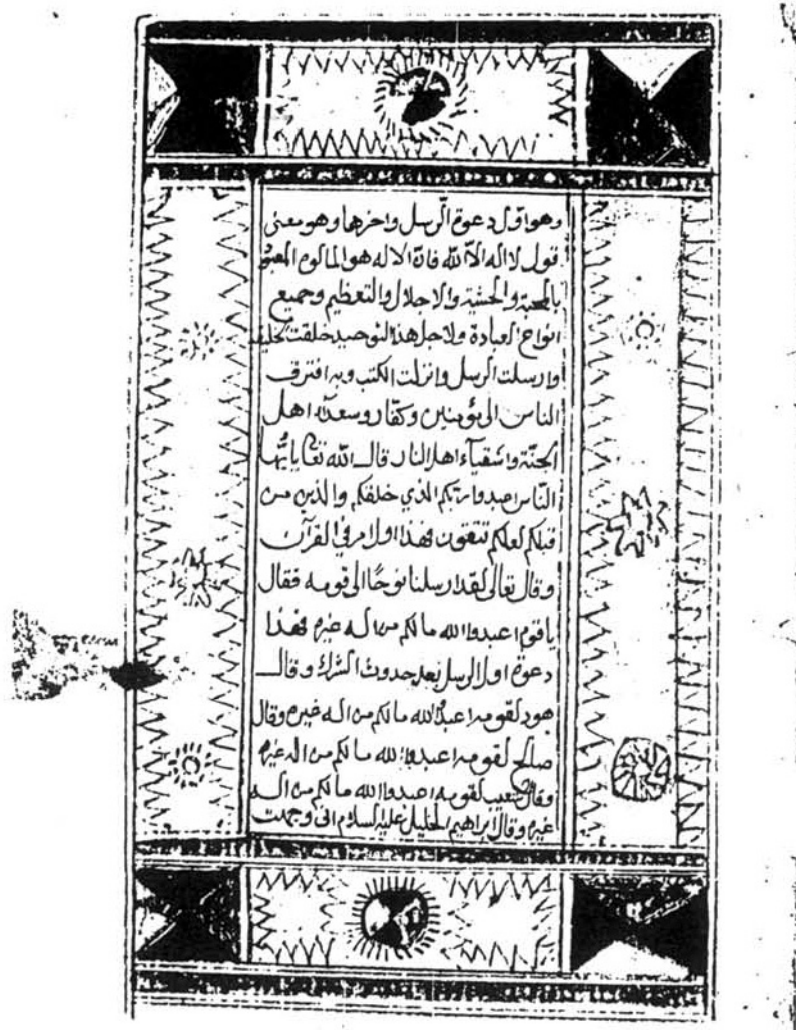 وهو اول دعوة الرسل واخرها وهو معنى
قول لا اله الا الله فان الاله هو المالوه المعبود
بالمحبة والخشية والاجلال والتعظيم وجميع
انواع العبادة ولاجل هذا التوحيد خلقت الخليقة
وارسلت الرسل وانزلت الكتب وبه افترق
الناس الى مؤمنين وكفار وسعداء اهل
الجنة واشقياء اهل النار قال الله تعا ياايها
الناس اعبدوا ربكم الذي خلقكم والذين من
قبلكم لعلكم تتقون فهذا اول امر في القرآن
وقال تعالى لقد ارسلنا نوحًا الى قومه فقال
ياقوم اعبدوا الله مالكم من اله غيره فهذا
دعوة اول الرسل بعد حدوث الشرك وقال
هود لقومه اعبدوا الله مالكم من اله غيره وقال
صالح لقومه اعبدوا الله مالكم من اله غيره
وقال شعيب لقومه اعبدوا الله مالكم من اله
غيره وقال ابراهيم الخليل عليه السلام اني وجهت